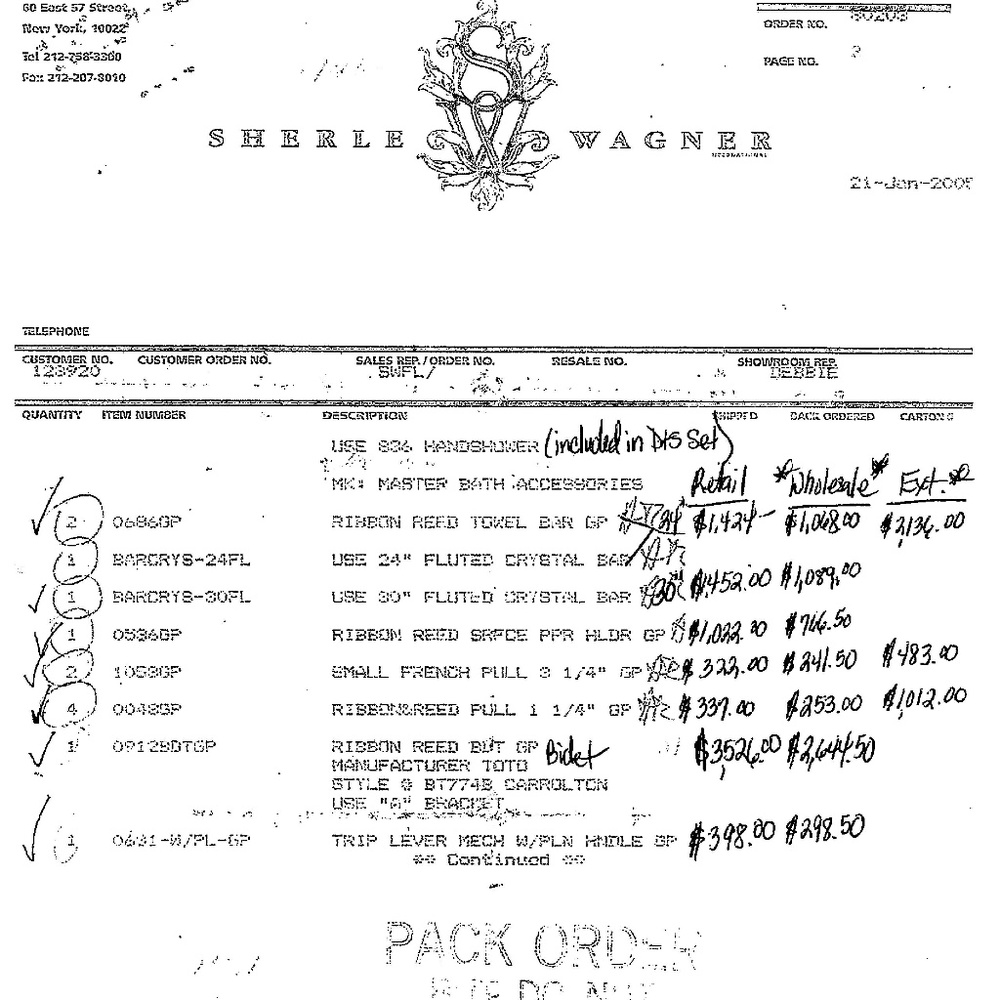 60 East 57 Street
New York, 10022
Tel 212-758-3300
Fax 212-207-8010
ORDER NO.
PAGE NO.
SHERLE WAGNER
INTERNATIONAL
21-Jan-2005
TELEPHONE
CUSTOMER NO. CUSTOMER ORDER NO. SALES REP./ORDER NO. RESALE NO. SHOWROOM REP.
123920 SWFL/ DEBBIE
QUANTITY ITEM NUMBER DESCRIPTION SHIPPED BACK ORDERED CARTONS
USE 836 HANDSHOWER (included in D+S Set)
MK: MASTER BATH ACCESSORIES Retail *Wholesale* Ext.
2 0686GP RIBBON REED TOWEL BAR GP 24" $1,424- $1,068.00 $2,136.00
1 BARCRYS-24FL USE 24" FLUTED CRYSTAL BAR
1 BARCRYS-30FL USE 30" FLUTED CRYSTAL BAR 30" $1,452.00 $1,089.00
1 0536GP RIBBON REED SRFCE PPR HLDR GP $1,022.00 $766.50
2 1053GP SMALL FRENCH PULL 3 1/4" GP $322.00 $241.50 $483.00
4 0048GP RIBBON&REED PULL 1 1/4" GP $337.00 $253.00 $1,012.00
1 0912BDTGP RIBBON REED BDT GP Bidet $3,526.00 $2,644.50
MANUFACTURER TOTO
STYLE @ BT774B CARROLTON
USE "A" BRACKET
1 0631-W/PL-GP TRIP LEVER MECH W/PLN HNDLE GP $398.00 $298.50
** Continued **
PACK ORDER